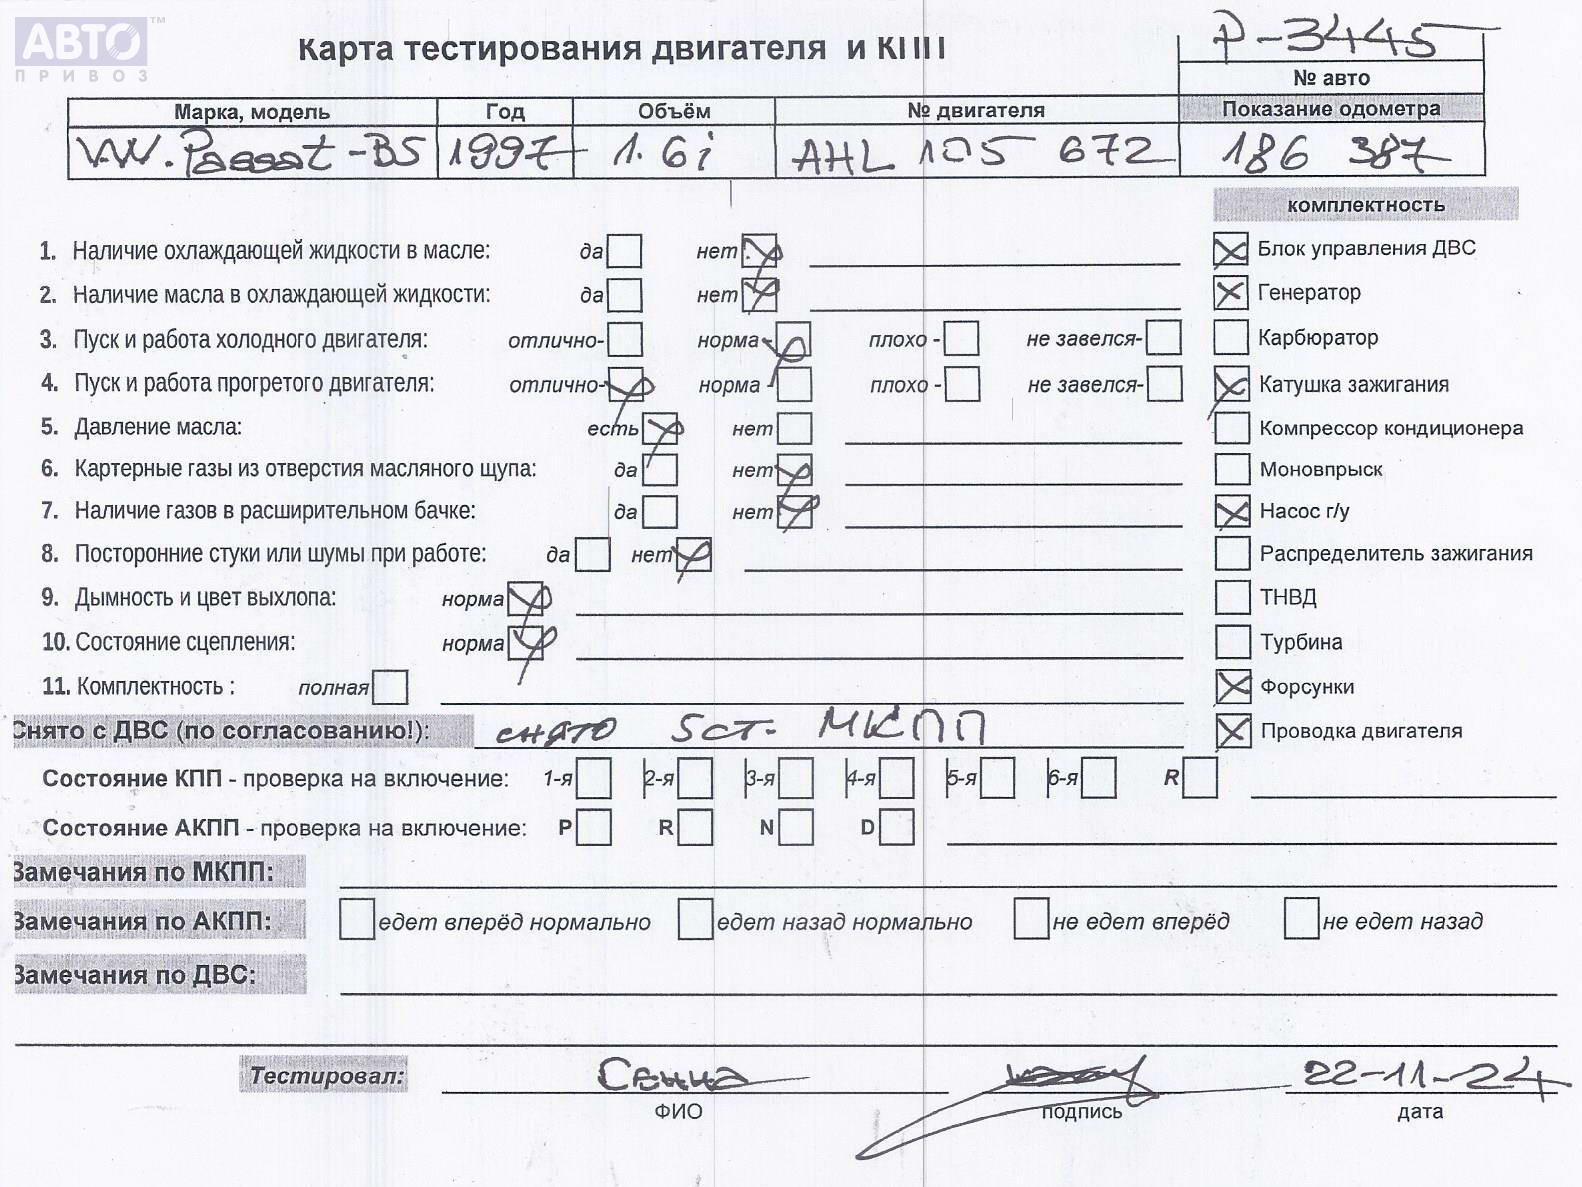 АВТО™
ПРИВОЗ
Карта тестирования двигателя и КПП
P-3445
№ авто
Марка, модель Год Объём № двигателя Показание одометра
V.W. Passat-B5 1997 1.6i AHL 105 672 186 387
комплектность
1. Наличие охлаждающей жидкости в масле: да нет
Блок управления ДВС
2. Наличие масла в охлаждающей жидкости: да нет
Генератор
3. Пуск и работа холодного двигателя: отлично- норма- плохо - не завелся-
Карбюратор
4. Пуск и работа прогретого двигателя: отлично- норма - плохо - не завелся-
Катушка зажигания
5. Давление масла: есть нет
Компрессор кондиционера
6. Картерные газы из отверстия масляного щупа: да нет
Моновпрыск
7. Наличие газов в расширительном бачке: да нет
Насос г/у
8. Посторонние стуки или шумы при работе: да нет
Распределитель зажигания
9. Дымность и цвет выхлопа: норма
ТНВД
10. Состояние сцепления: норма
Турбина
11. Комплектность : полная
Форсунки
Снято с ДВС (по согласованию!): снято 5ст. МКПП
Проводка двигателя
Состояние КПП - проверка на включение: 1-я 2-я 3-я 4-я 5-я 6-я R
Состояние АКПП - проверка на включение: P R N D
Замечания по МКПП:
Замечания по АКПП: едет вперёд нормально едет назад нормально не едет вперёд не едет назад
Замечания по ДВС:
Тестировал: Сенна 22-11-24
ФИО подпись дата